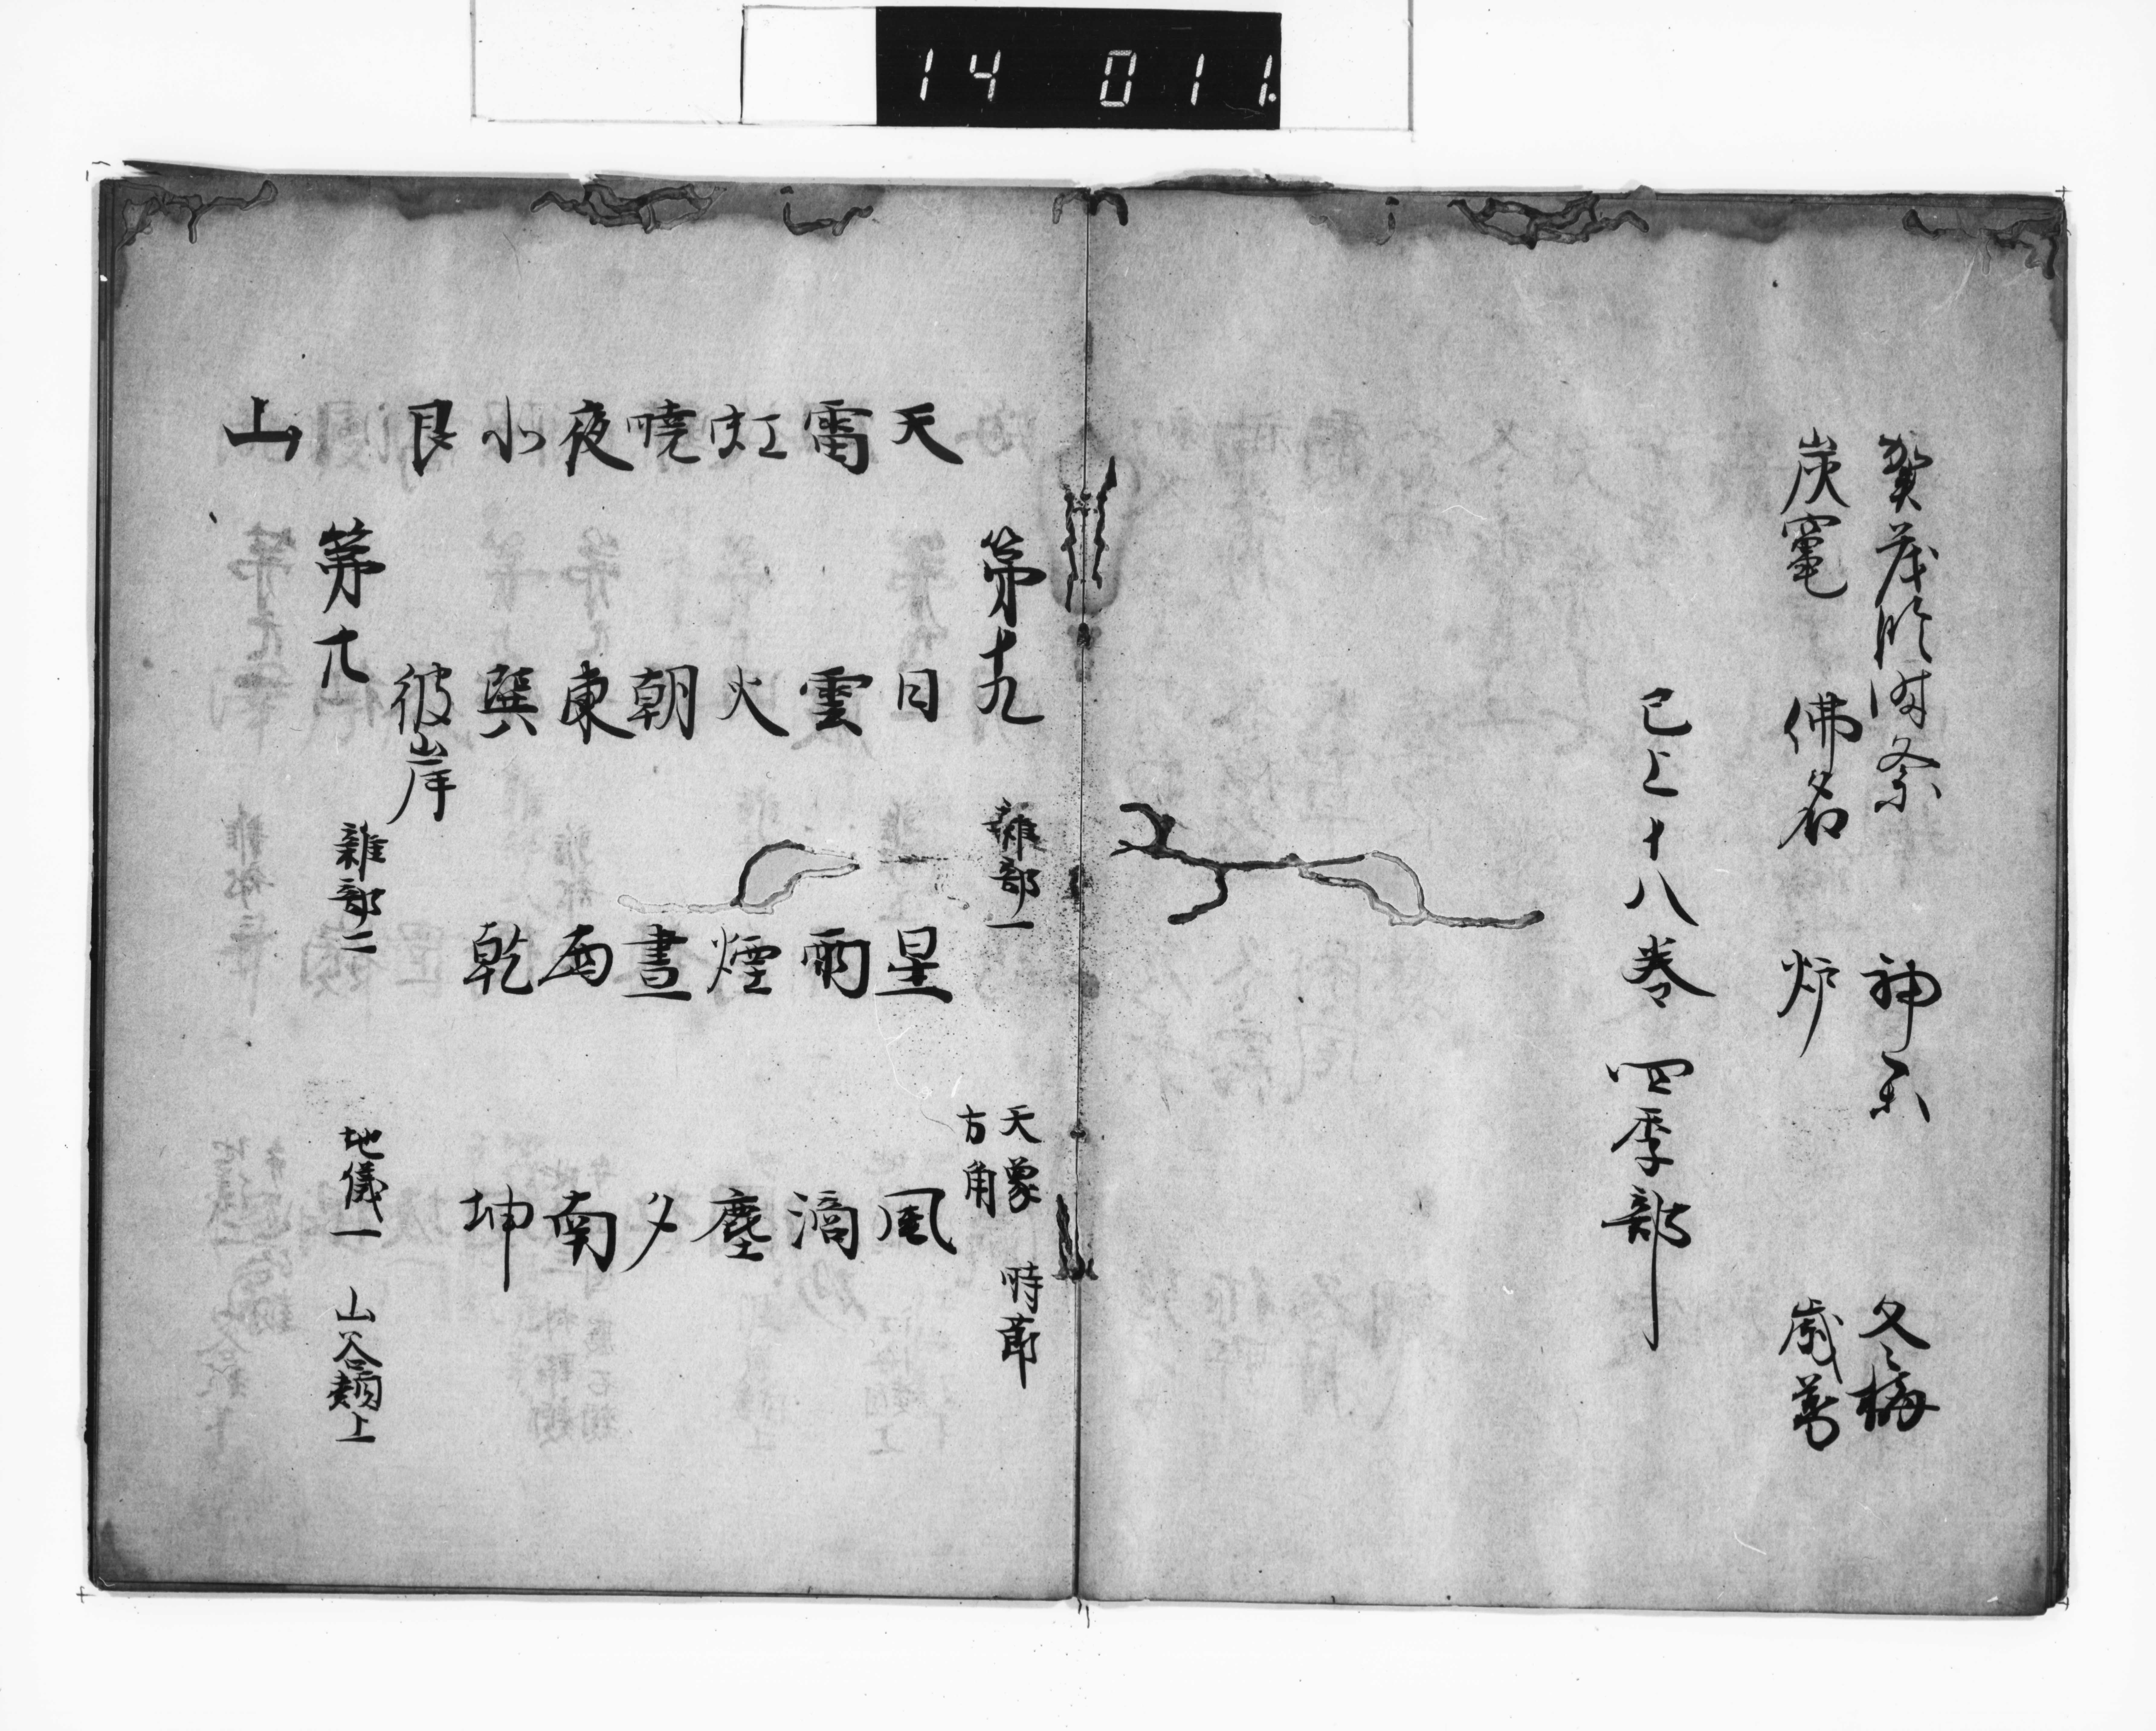 14 011
賀茂臨時祭 神楽 冬梅
炭竃 佛名 炉 歳暮
已上十八巻 四季部
第十九 雑部一 天象 時節
方角
天 日 星 風
雷 雲 雨 滴
虹 火 煙 塵
暁 朝 晝 夕
夜 東 西 南
北 巽 乾 坤
艮 彼岸
第廿 雜部二 地儀一 山谷類上
山